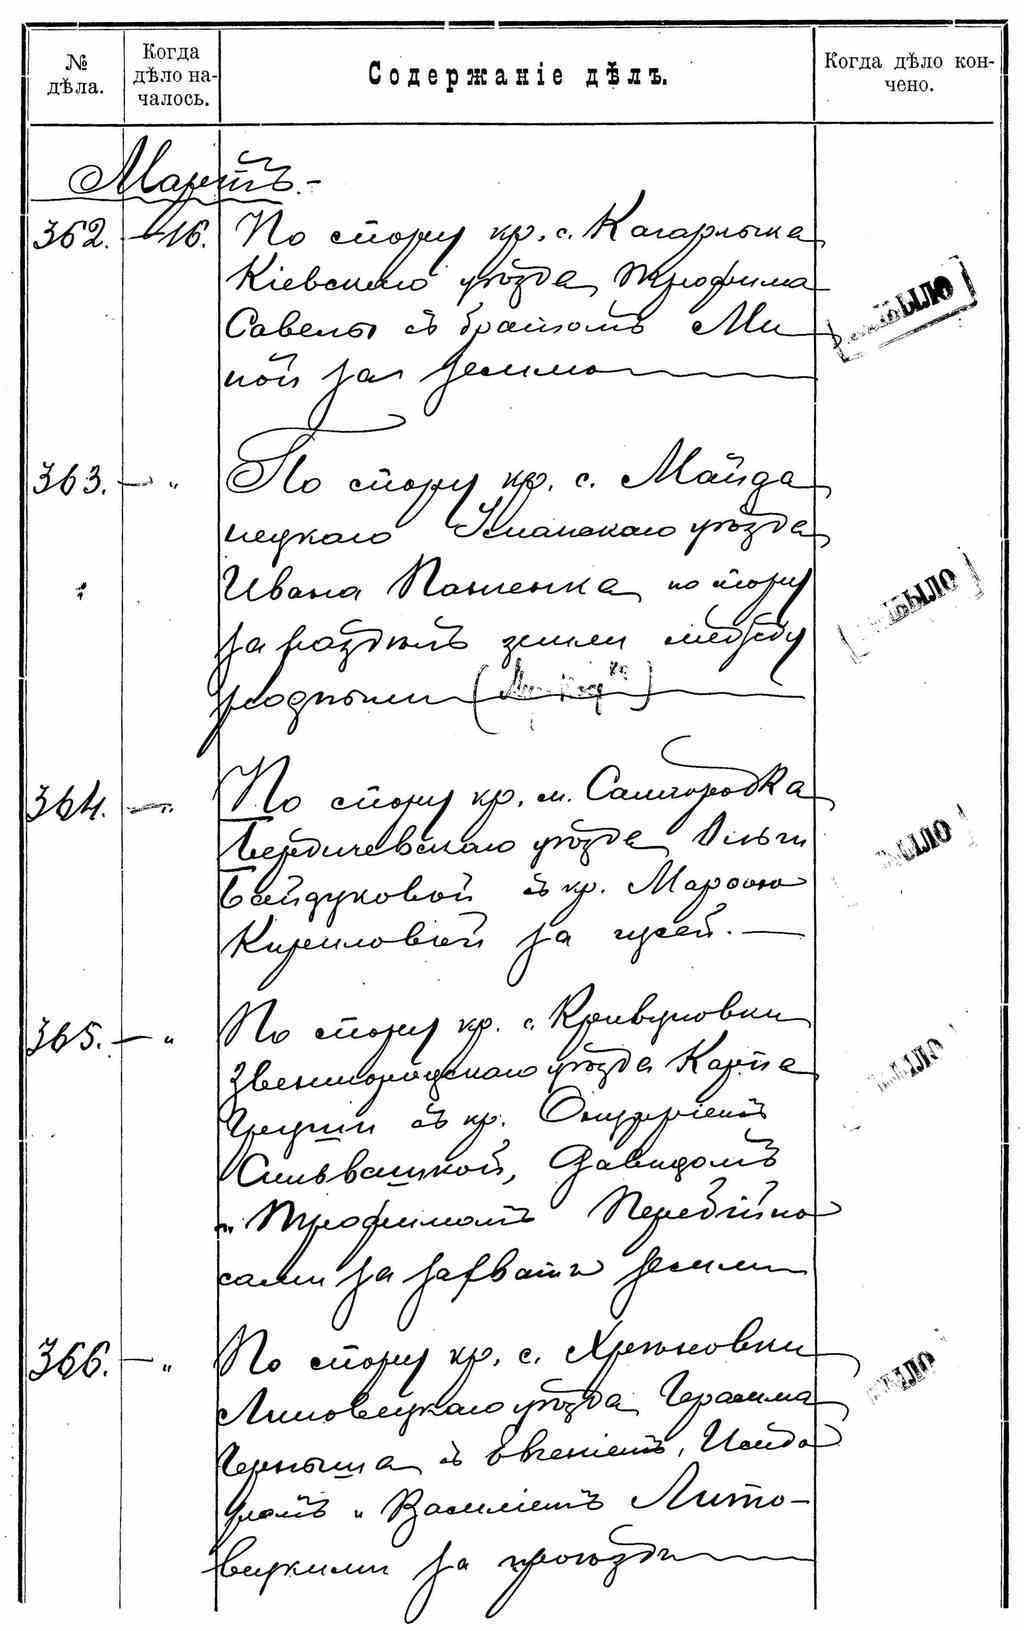 № дѣла.
Когда дѣло на-
чалось.
Содержаніе дѣлъ.
Когда дѣло кон-
чено.
Мартъ.-
362. - 16. По спору кр. с. Кагарлыка
Кіевскаго уѣзда Трофима
Савелы съ братомъ Ми
ной за землю
ВЫБЫЛО
363. - „ По спору кр. с. Майда
нецкаго Уманскаго уѣзда
Ивана Пашенка по спору
за раздѣлъ земли между
родными
ВЫБЫЛО
364. - „ По спору кр. м. Самгородка
Бердичевскаго уѣзда Ольги
Байдуковой съ кр. Марѳою
Кириловіей за гусей. -
ВЫБЫЛО
365. - „ По спору кр. с. Кривуновки
Звенигородскаго уѣзда Карпа
Грещти съ кр. Онуфріемъ
Сильвашкой, Давидомъ
и ТрофимомъПеребійно
сами за захватъ земли
ВЫБЫЛО
366. - „ По спору кр. с. Хрѣновки
Липовецкаго уѣзда Герасима
Черныша съ Евгеніемъ, Исидо
ромъ и Василіемъ Лито-
вецкими за проѣздъ
ВЫБЫЛО